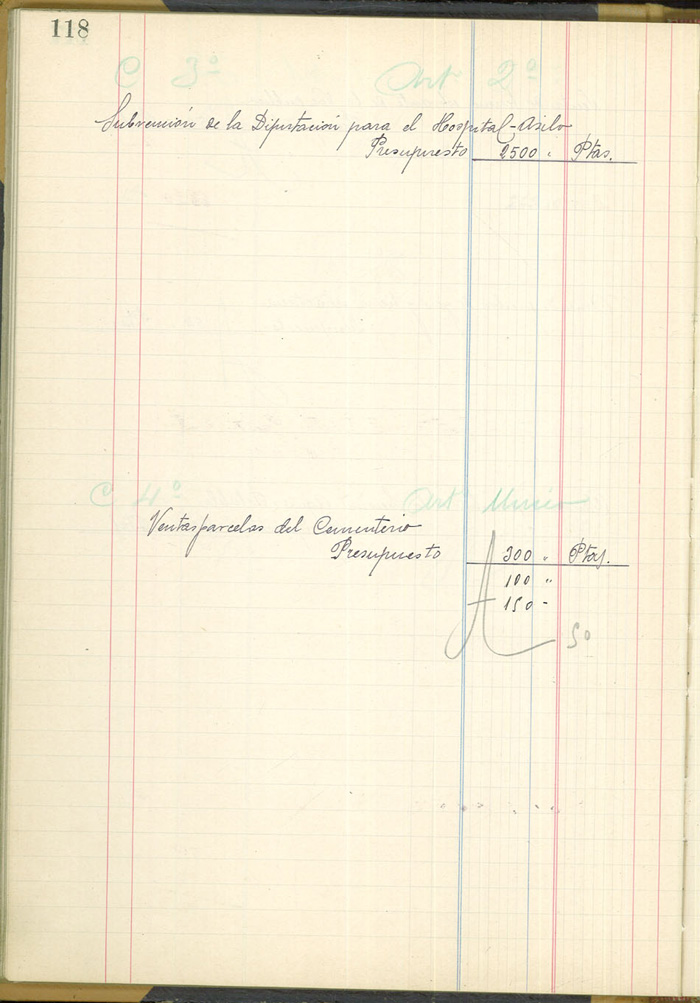 118
C 3º Art 2º
Subvención de la Diputación para el Hospital-Asilo
Presupuesto 2500 " Ptas.
C 4º Art Único
Ventas parcelas del Cementerio
Presupuesto 300 " Ptas.
100 "
150 -
50